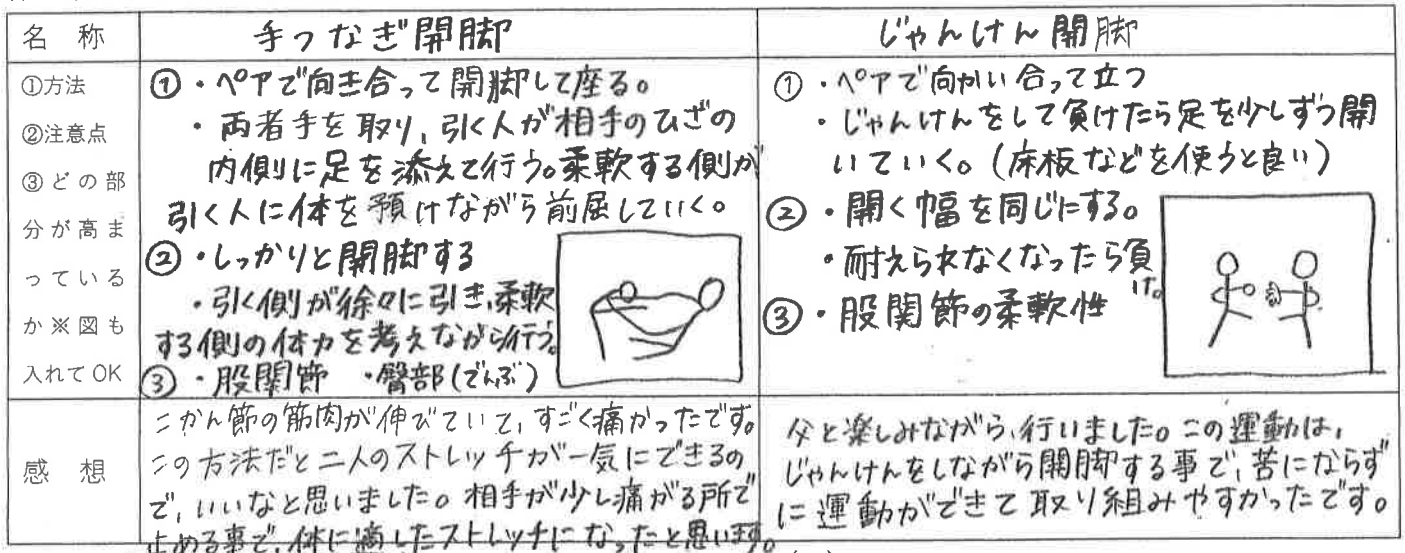 名 称
手つなぎ開脚
じゃんけん開脚
①方法
②注意点
③どの部
分が高ま
っている
か※図も
入れてOK
①・ペアで向き合って開脚して座る。
・両者手を取り、引く人が相手のひざの
内側に足を添えて行う。柔軟する側が
引く人に体を預けながら前屈していく。
②・しっかりと開脚する
・引く側が徐々に引き、柔軟
する側の体力を考えながら行う。
③・股関節 ・臀部(でんぶ)
①・ペアで向かい合って立つ
・じゃんけんをして負けたら足を少しずつ開
いていく。(床板などを使うと良い)
②・開く幅を同じにする。
・耐えられなくなったら負
け。
③・股関節の柔軟性
感 想
こかん節の筋肉が伸びていて、すごく痛かったです。
この方法だと二人のストレッチが一気にできるの
で、いいなと思いました。相手が少し痛がる所で
止める事で、体に適したストレッチになったと思います。
父と楽しみながら、行いました。この運動は、
じゃんけんをしながら開脚する事で、苦にならず
に運動ができて取り組みやすかったです。